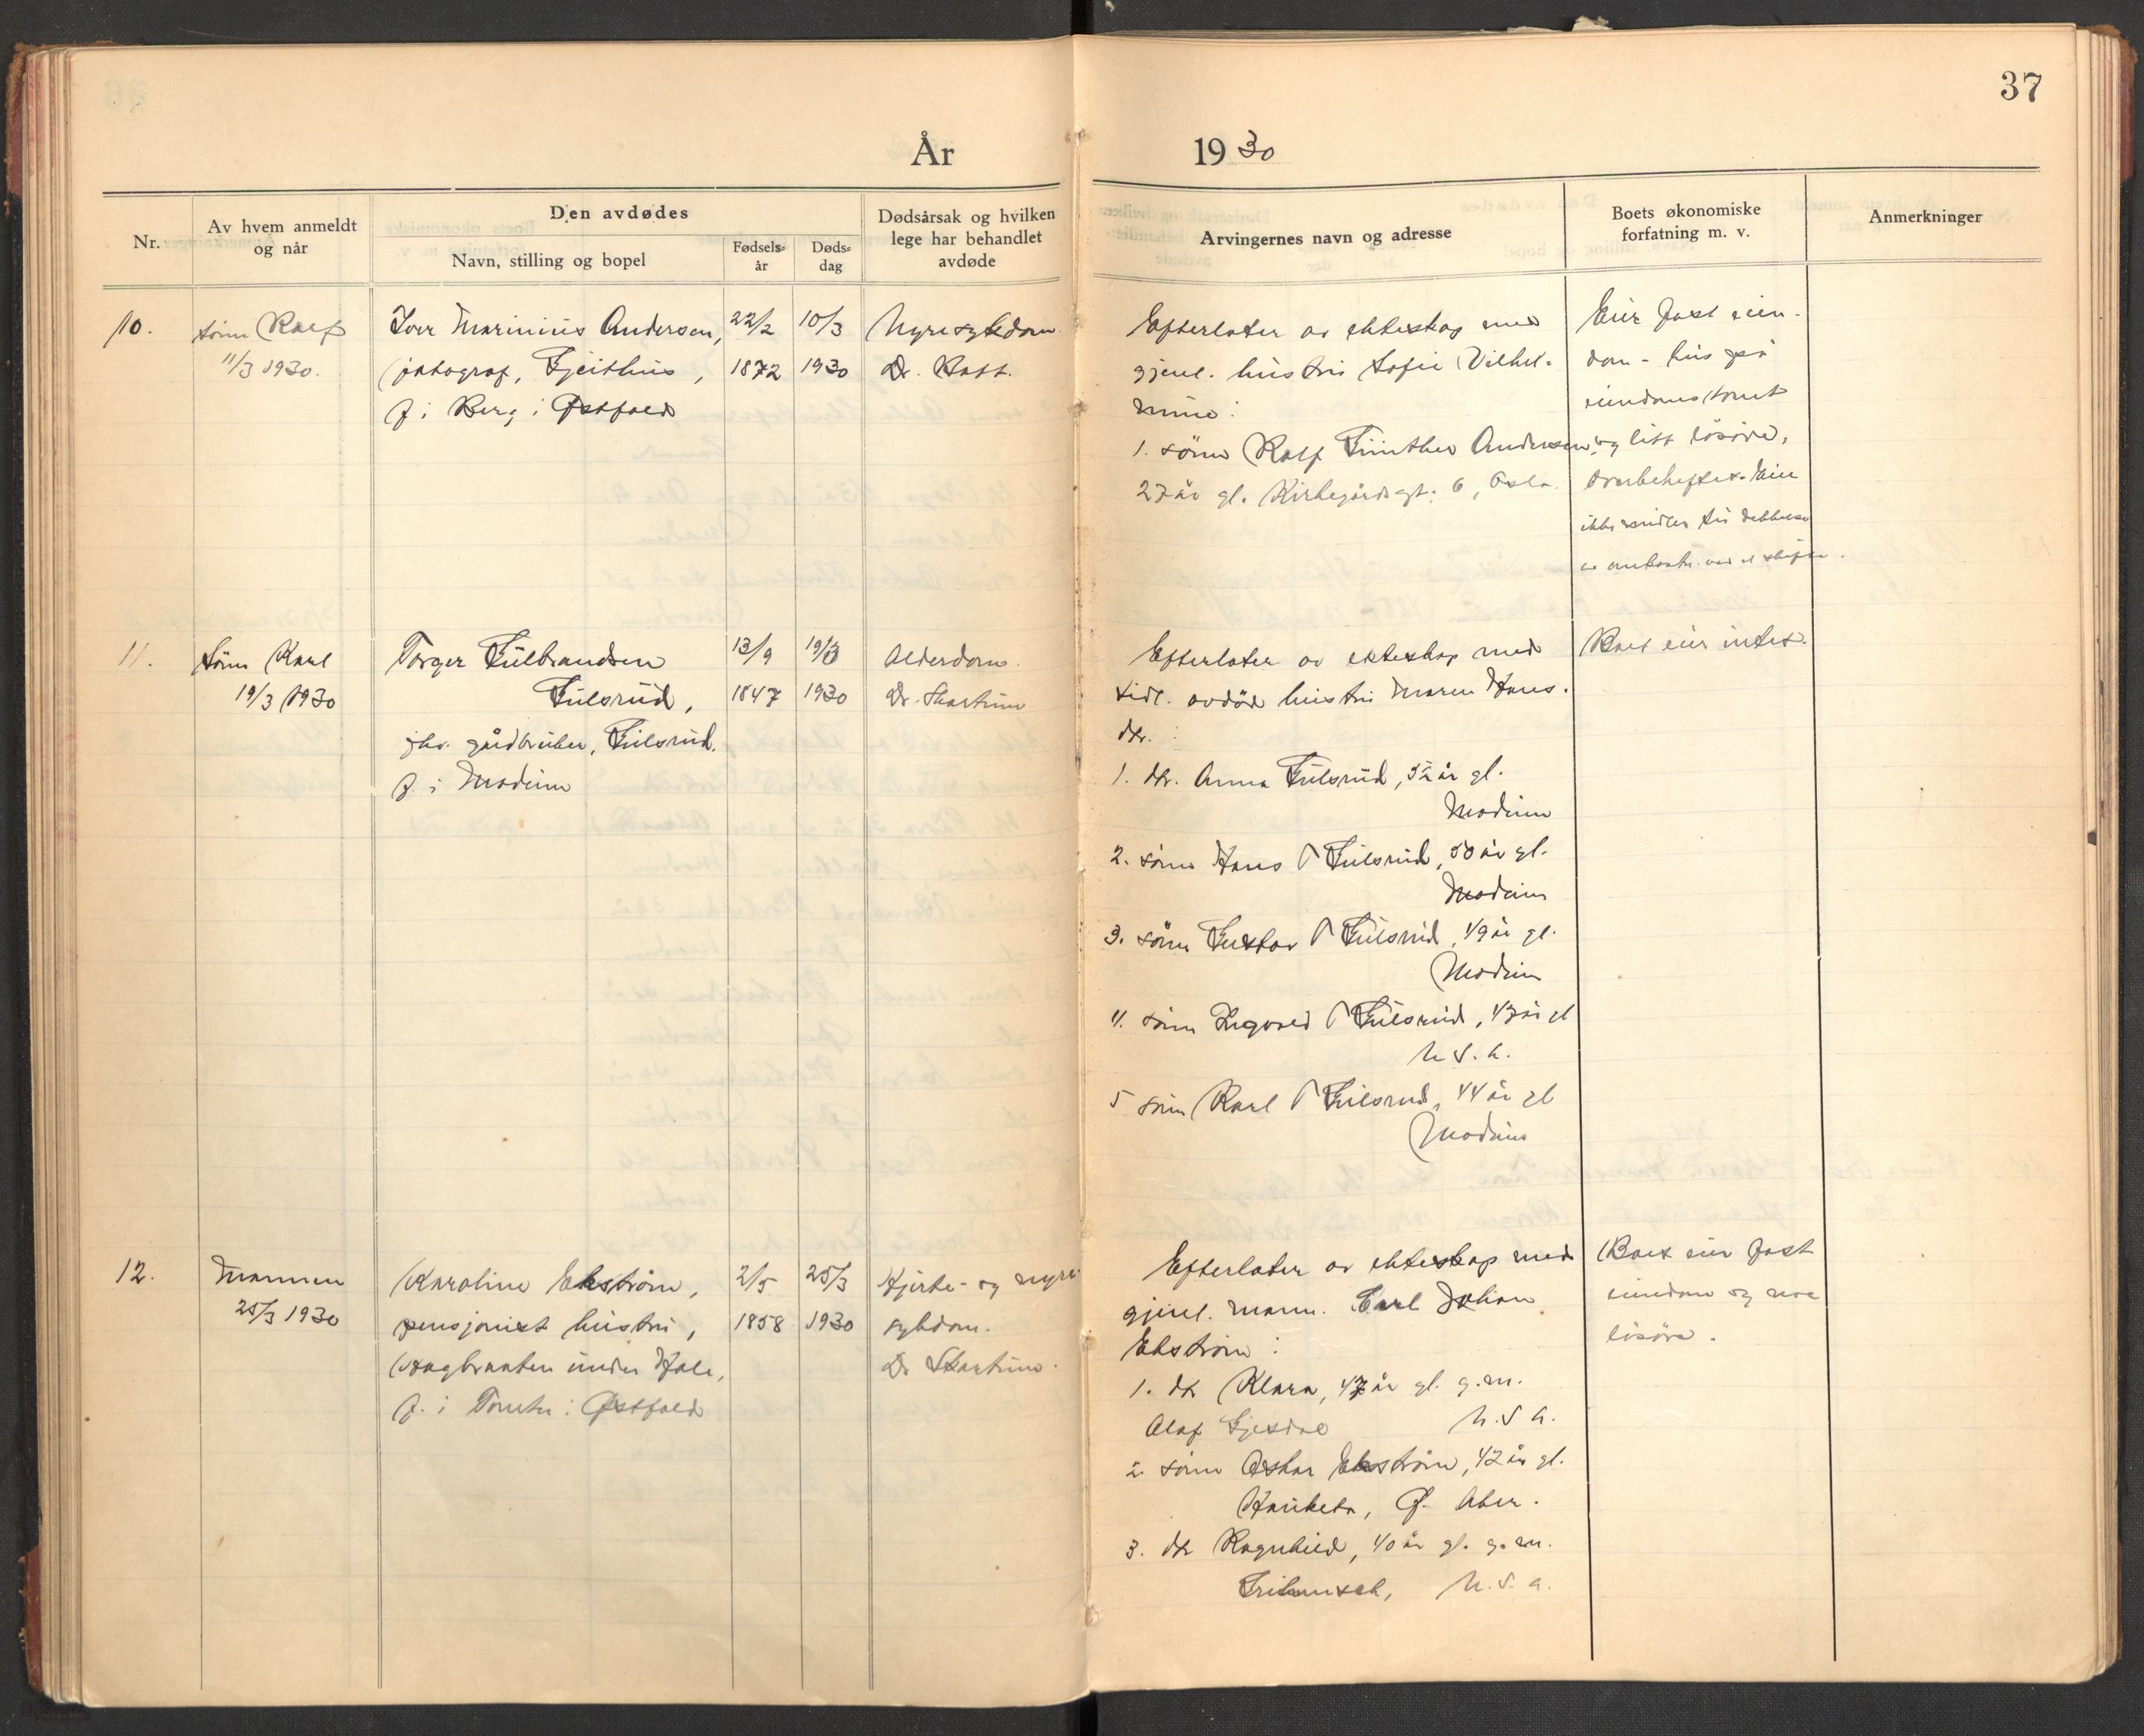 37
År 1930
Nr.
Av hvem anmeldt
og når
Den avdødes
Navn, stilling og bopel
Fødsels-
år
Døds-
dag
Dødsårsak og hvilken
lege har behandlet
avdøde
Arvingernes navn og adresse
Boets økonomiske
forfatning m. v.
Anmerkninger
10.
sønn Ralf
11/3 1930.
Iver Marinius Andersen,
fotograf, Gjeithus,
f. i Berg i Østfold
22/2
1872
10/3
1930
Nyresykdom
Dr.
Efterlater av ekteskap med
gjenl. hustru Sofie Vilhel-
mine:
1. sønn Ralf Günther Andersen,
27 år gl. Kirkegårdsgt. 6, Oslo.
Eier fast eien-
dom - hus på
eiendomstomt
og litt løsøre,
overbeheftet. Eier
ikke midler til dekkelse
av omkostn. ved et skifte.
11.
Sønn Karl
19/3 1930
Torger Gulbrandsen
Gulsrud,
fhv. gårdbruker, Gulsrud.
f. i Modum
13/9
1847
19/3
1930
Alderdom.
Dr. Skartum
Efterlater av ekteskap med
tidl. avdøde hustru Maren Hans-
dtr. :
1. dtr. Anna Gulsrud, 52 år gl.
Modum
2. sønn Hans T Gulsrud, 50 år gl.
Modum
3. sønn Gustav T Gulsrud, 49 år gl.
Modum
4. sønn Ingvald T Gulsrud, 47 år gl
U.S.A.
5 sønn Karl T Gulsrud, 44 år gl
Modum
Boet eier intet.
12.
Mannen
25/3 1930
Karoline Ekstrøm,
pensjonist hustru,
under Hole,
f. i Tomter i Østfold
2/5
1858
25/3
1930
Hjerte- og nyre
sykdom.
Dr Skartum.
Efterlater av ekteskap med
gjenl. mann. Carl Johan
Ekstrøm :
1. dtr Klara, 47 år gl. g.m.
Olaf Gjesdal U.S.A.
2. sønn Oskar Ekstrøm, 42 år gl.
Ø. Aker.
3. dtr Ragnhild, 40 år gl. g.m.
U.S.A.
Boet eier fast
eiendom og noe
løsøre.